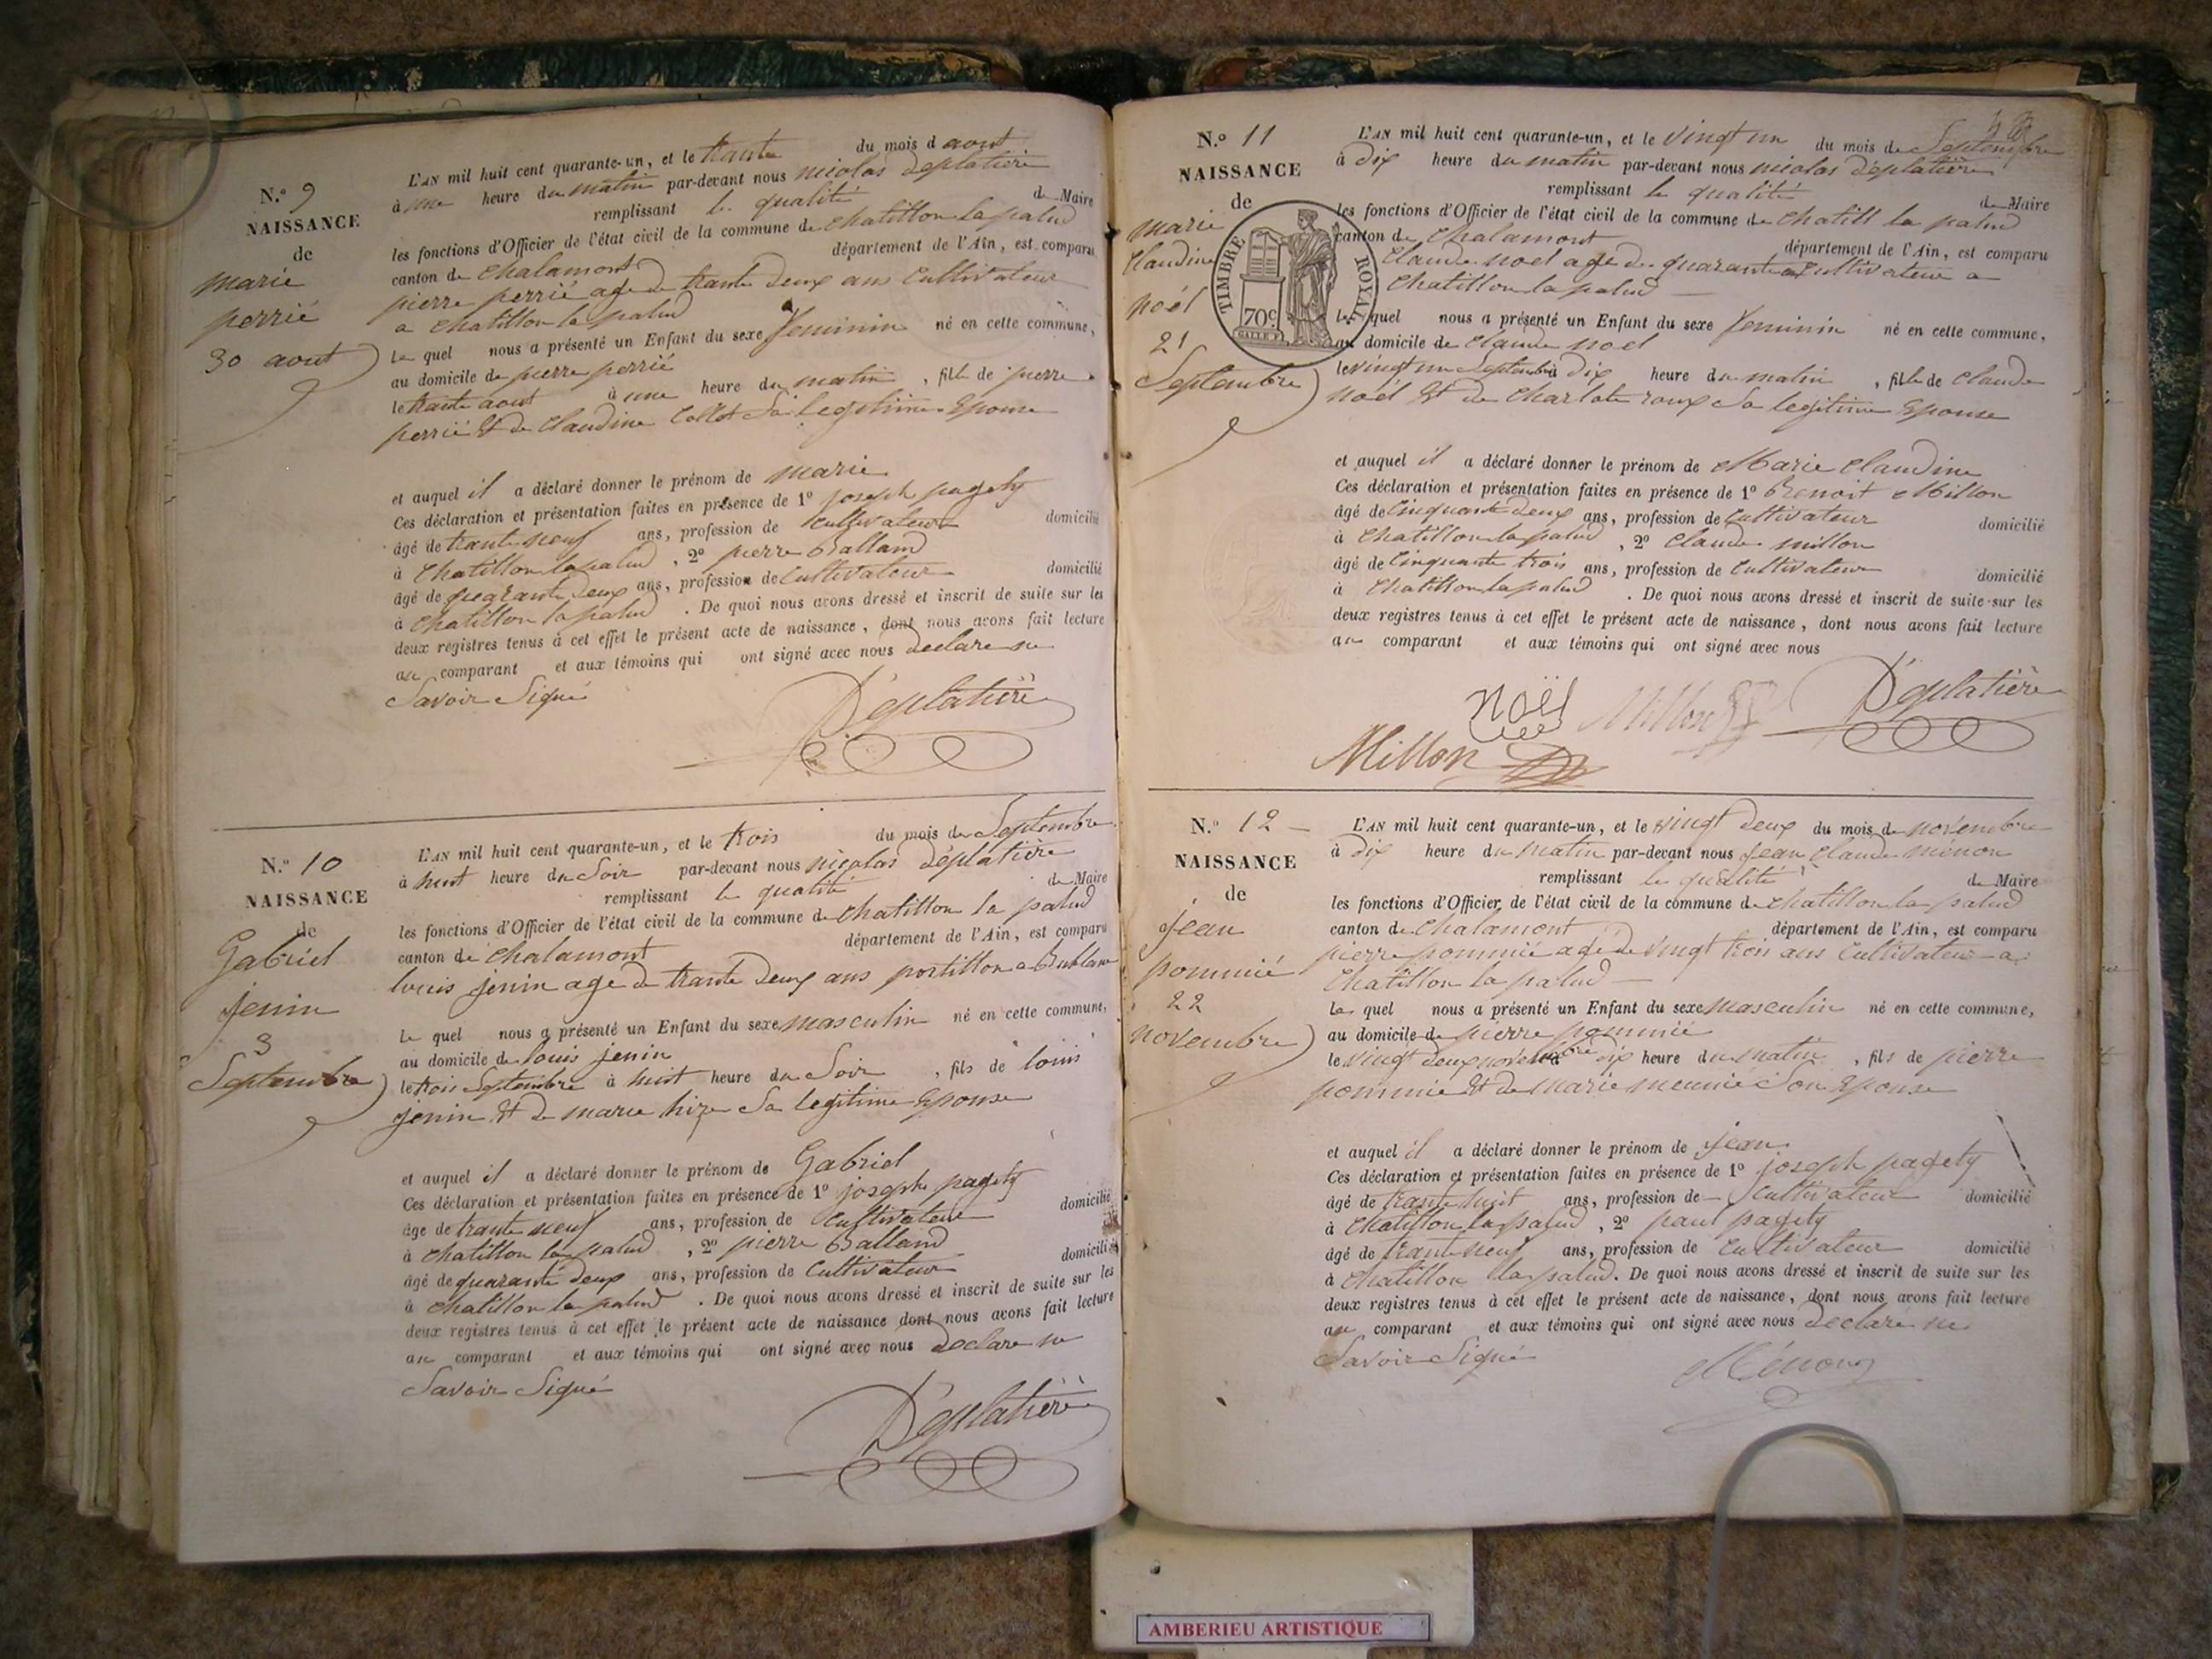 N.o 9
NAISSANCE
de
marie
perrié
30 aout
L'AN mil huit cent quarante-un, et le trante du mois d aout
à une heure du matin par-devant nous nicolas déplatière
remplissant la qualité de Maire
les fonctions d'Officier de l'état civil de la commune de chatillon la palud
canton de chalamont département de l'Ain, est comparu
pierre perrié age de trante deux ans Cultivateur
a chatillon la palud
Le quel nous a présenté un Enfant du sexe feminin né en cette commune,
au domicile de pierre perrié
le trante aout à une heure du matin, fille de pierre
perrié Et de claudine Collet Sa legitime Epouse
et auquel il a déclaré donner le prénom de marie
Ces déclaration et présentation faites en présence de 1o joseph pagety
âgé de trante neuf ans, profession de Cultivateur domicilié
à chatillon la palud, 2o pierre Balland
âgé de quarante deux ans, profession de Cultivateur domicilié
à chatillon la palud. De quoi nous avons dressé et inscrit de suite sur les
deux registres tenus à cet effet le présent acte de naissance, dont nous avons fait lecture
au comparant et aux témoins qui ont signé avec nous declare ne
Savoir Signé
Déplatière
N.o 10
NAISSANCE
de
Gabriel
jenin
3
Septembre
L'AN mil huit cent quarante-un, et le trois du mois de Septembre
à huit heure du Soir par-devant nous nicolas déplatière
remplissant la qualité de Maire
les fonctions d'Officier de l'état civil de la commune de chatillon la palud
canton de chalamont département de l'Ain, est comparu
louis jenin age de trante deux ans portillon a Bublane
Le quel nous a présenté un Enfant du sexe masculin né en cette commune,
au domicile de louis jenin
le trois Septembre à huit heure du Soir, fils de louis
jenin Et de marie hize Sa legitime Epouse
et auquel il a déclaré donner le prénom de Gabriel
Ces déclaration et présentation faites en présence de 1o joseph pagety
âge de trante neuf ans, profession de Cultivateur domicilié
à chatillon la palud, 2o pierre Balland
âgé de quarante deux ans, profession de Cultivateur domicilié
à chatillon la palud. De quoi nous avons dressé et inscrit de suite sur les
deux registres tenus à cet effet le présent acte de naissance dont nous avons fait lecture
au comparant et aux témoins qui ont signé avec nous declare ne
Savoir Signé
Déplatière
N.o 11
NAISSANCE
de
marie
Claudine
noël
21
Septembre
TIMBRE ROYAL
70c
L'AN mil huit cent quarante-un, et le vingt un du mois de Septembre
à dix heure du matin par-devant nous nicolas déplatière
remplissant la qualité de Maire
les fonctions d'Officier de l'état civil de la commune de chatill la palud
canton de chalamont département de l'Ain, est comparu
Claude noel age de quarante Cultivateur a
chatillon la palud
Le quel nous a présenté un Enfant du sexe feminin né en cette commune,
au domicile de claude noel
le vingt un Septembre à dix heure du matin, fille de claude
noël Et de charlote roux Sa legitime Epouse
et auquel il a déclaré donner le prénom de Marie Claudine
Ces déclaration et présentation faites en présence de 1o Benoit Millon
âgé de Cinquante deux ans, profession de Cultivateur domicilié
à chatillon la palud, 2o Claude millon
âgé de Cinquante trois ans, profession de Cultivateur domicilié
à chatillon la palud. De quoi nous avons dressé et inscrit de suite sur les
deux registres tenus à cet effet le présent acte de naissance, dont nous avons fait lecture
au comparant et aux témoins qui ont signé avec nous
noël Millon Déplatière
Millon
N.o 12
NAISSANCE
de
jean
pommié
22
novembre
L'AN mil huit cent quarante-un, et le vingt deux du mois de novembre
à dix heure du matin par-devant nous jean claude ménon
remplissant la qualité de Maire
les fonctions d'Officier de l'état civil de la commune de chatillon la palud
canton de chalamont département de l'Ain, est comparu
pierre pommié agé de vingt trois ans Cultivateur a
chatillon la palud
Le quel nous a présenté un Enfant du sexe masculin né en cette commune,
au domicile de pierre pommié
le vingt deux novembre à dix heure du matin, fils de pierre
pommié Et de marie meunié Son Epouse
et auquel il a déclaré donner le prénom de jean
Ces déclaration et présentation faites en présence de 1o joseph pagety
âgé de trante huit ans, profession de Cultivateur domicilié
à chatillon la palud, 2o paul pagety
âgé de trante neuf ans, profession de Cultivateur domicilié
à chatillon la palud. De quoi nous avons dressé et inscrit de suite sur les
deux registres tenus à cet effet le présent acte de naissance, dont nous avons fait lecture
au comparant et aux témoins qui ont signé avec nous declaré ne
Savoir Signé
Ménon
AMBERIEU ARTISTIQUE